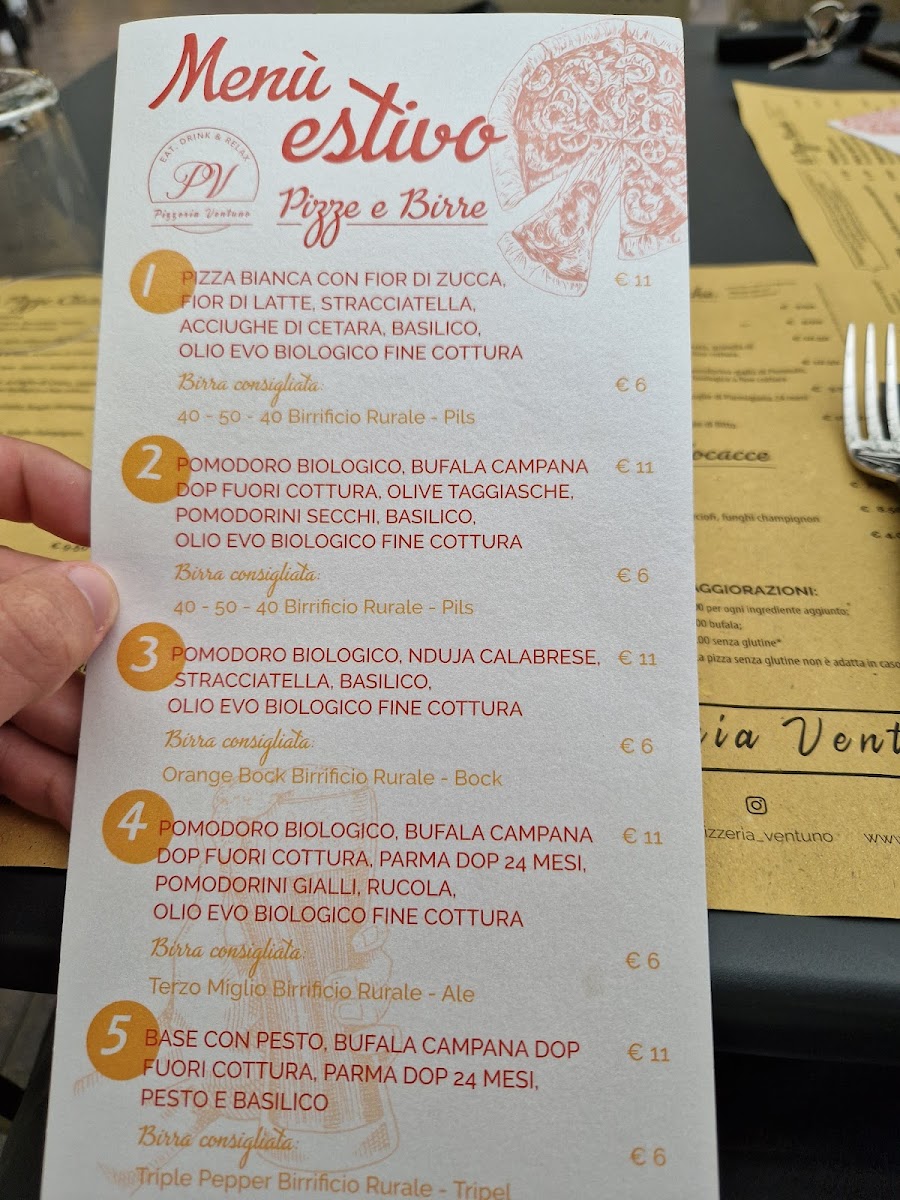 Menù
estivo
EAT, DRINK & RELAX
PV
Pizzeria Ventuno
Pizze e Birre
1 PIZZA BIANCA CON FIOR DI ZUCCA, € 11
FIOR DI LATTE, STRACCIATELLA,
ACCIUGHE DI CETARA, BASILICO,
OLIO EVO BIOLOGICO FINE COTTURA
Birra consigliata: € 6
40 - 50 - 40 Birrificio Rurale - Pils
2 POMODORO BIOLOGICO, BUFALA CAMPANA € 11
DOP FUORI COTTURA, OLIVE TAGGIASCHE,
POMODORINI SECCHI, BASILICO,
OLIO EVO BIOLOGICO FINE COTTURA
Birra consigliata: € 6
40 - 50 - 40 Birrificio Rurale - Pils
3 POMODORO BIOLOGICO, NDUJA CALABRESE, € 11
STRACCIATELLA, BASILICO,
OLIO EVO BIOLOGICO FINE COTTURA
Birra consigliata: € 6
Orange Bock Birrificio Rurale - Bock
4 POMODORO BIOLOGICO, BUFALA CAMPANA € 11
DOP FUORI COTTURA, PARMA DOP 24 MESI,
POMODORINI GIALLI, RUCOLA,
OLIO EVO BIOLOGICO FINE COTTURA
Birra consigliata: € 6
Terzo Miglio Birrificio Rurale - Ale
5 BASE CON PESTO, BUFALA CAMPANA DOP € 11
FUORI COTTURA, PARMA DOP 24 MESI,
PESTO E BASILICO
Birra consigliata: € 6
Triple Pepper Birrificio Rurale - Tripel
ocacce
ciofi, funghi champignon
AGGIORAZIONI:
00 per ogni ingrediente aggiunto;
00 bufala;
.00 senza glutine*
a pizza senza glutine non è adatta in caso
ria Vent
izzeria_ventuno www